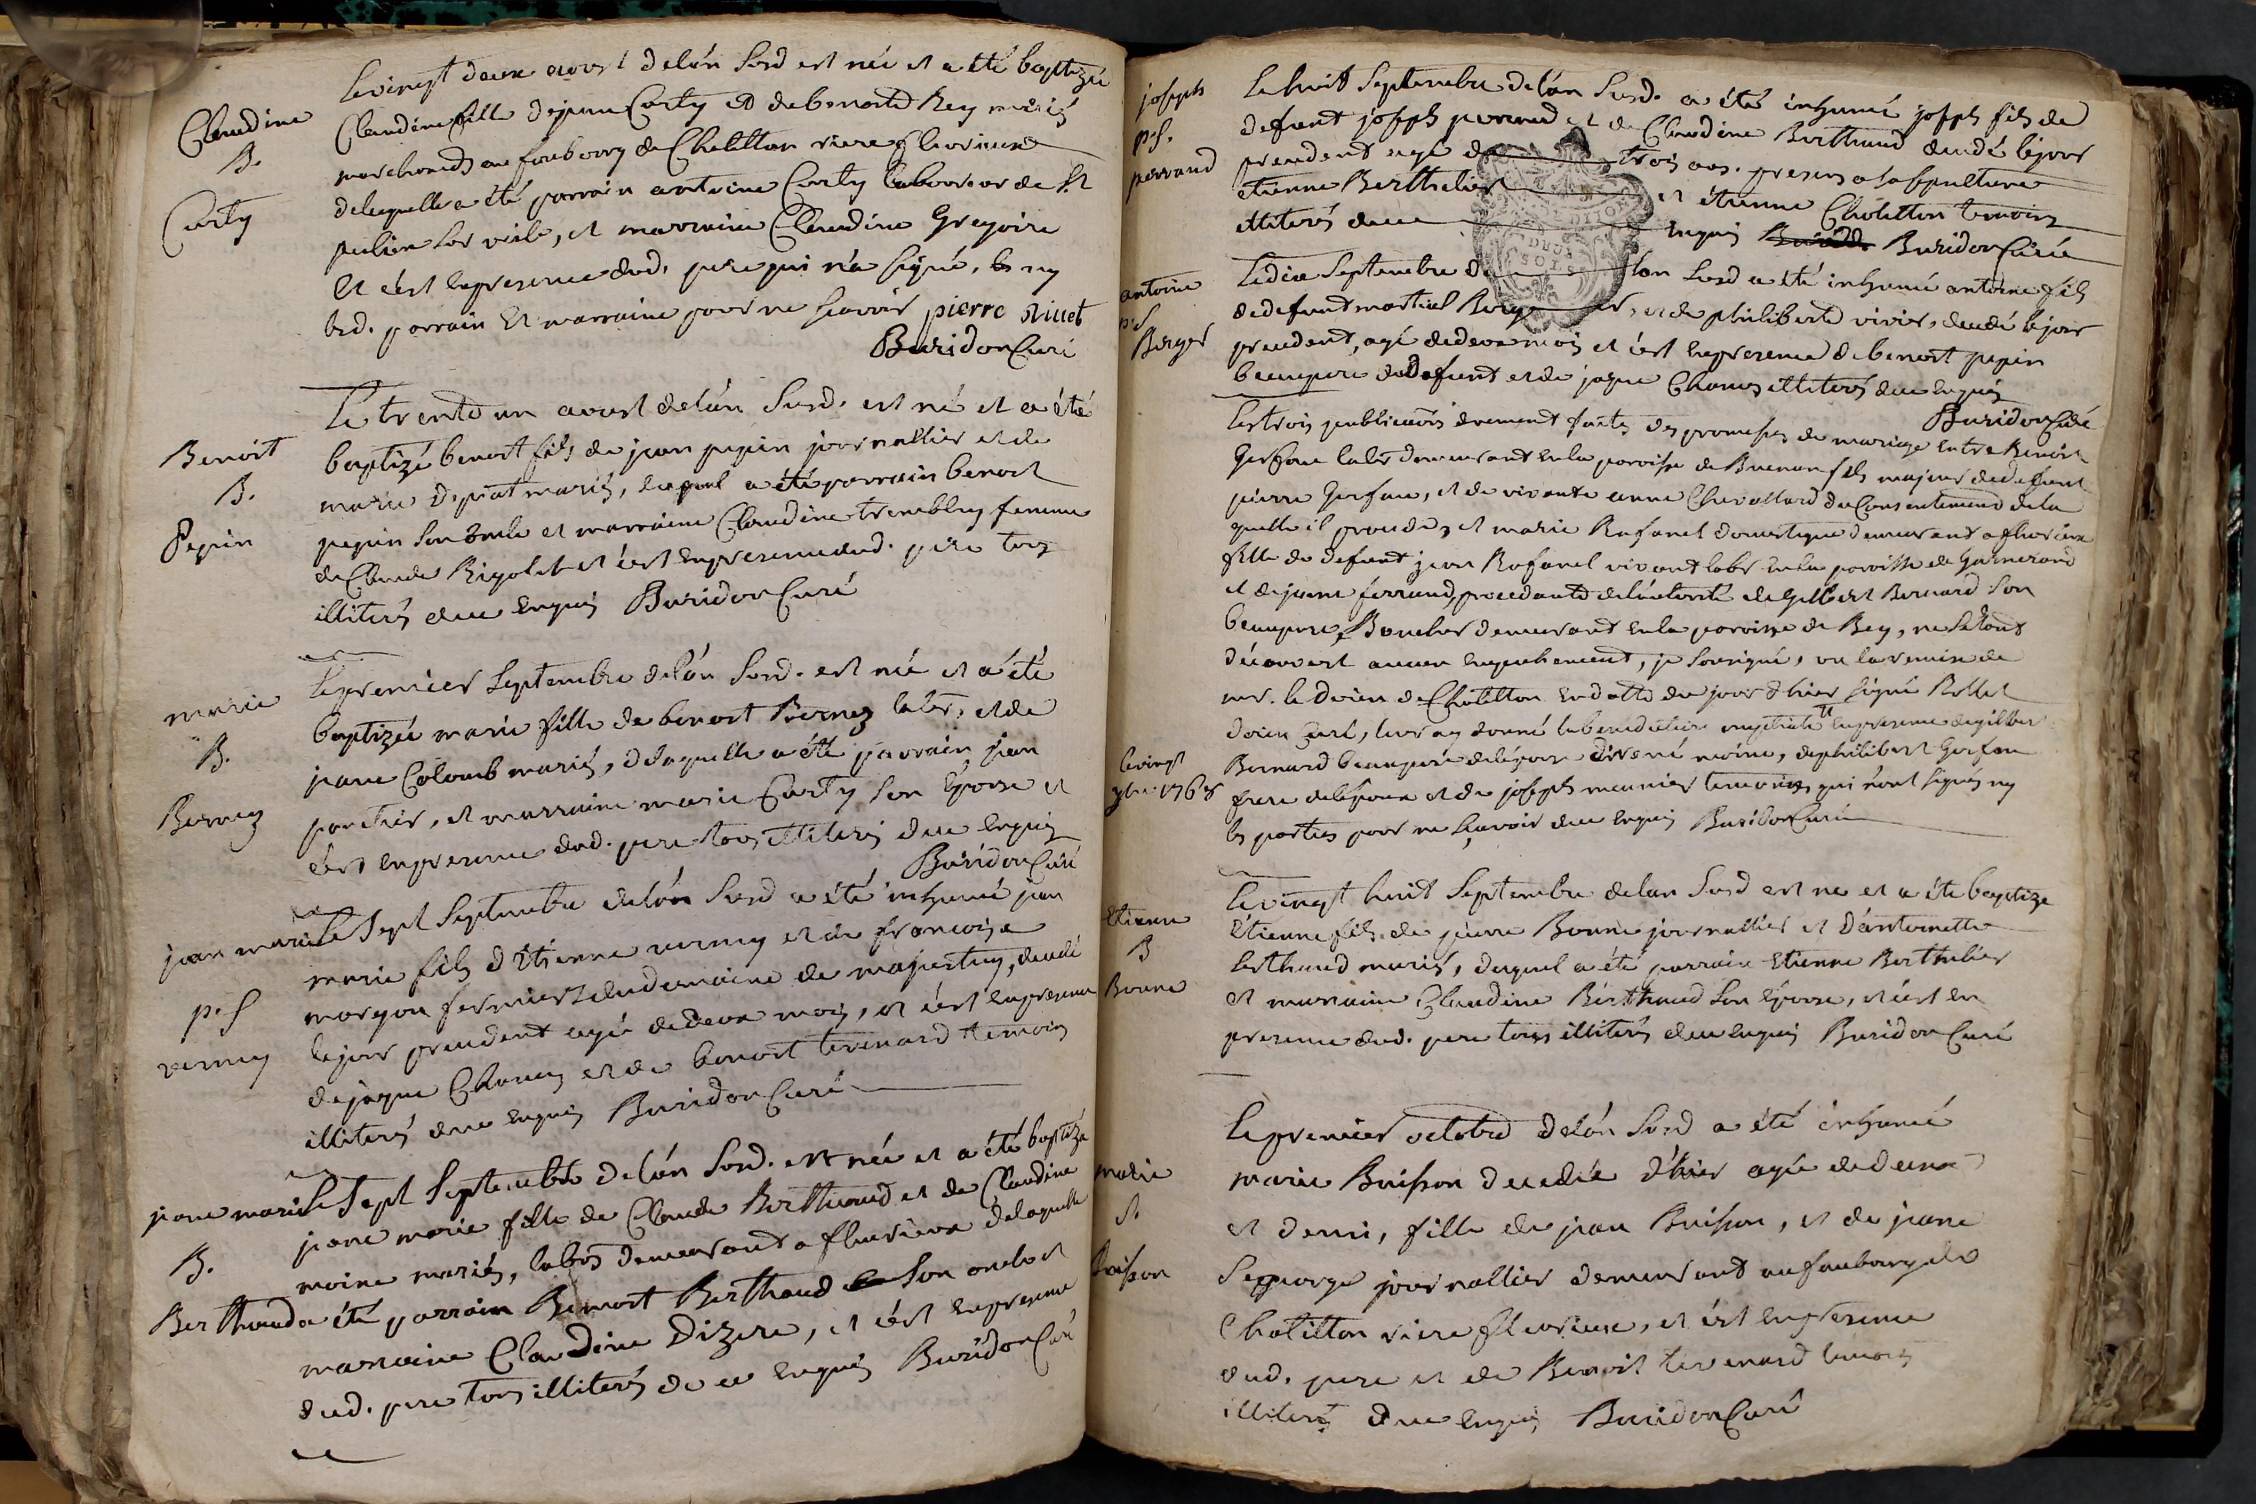 Claudine
B.
Carly
Le vingt deux aoust de l'an susd est née et a été baptizée
Claudine fille de jean Carly et de benoite Rey mariés
marchands au faubourg de Chatillon riere fleurieux
de laquelle a été parrain antoine Carly laboureur de St
julien sur vesle, et marraine Claudine Gregoire
et c'est en presence dud. pere qui n'a signé, ny
led. parrain et marraine pour ne scavoir pierre
Buridon Curé
Benoist
B.
Pepin
Le trente un aoust de l'an susd. est né et a été
baptizé benoist fils de jean pepin journallier et de
marie depiat mariés, duquel a été parrain benoist
pepin son oncle et marraine Claudine trembley femme
de Claude Rigolet et c'est en presence dud. pere tous
illiterés de ce enquis Buridon Curé
marie
B.
Bernez
Le premier septembre de l'an susd. est née et a été
baptizée marie fille de benoist Bernez labr. et de
jeane Colomb mariés, de laquelle a été parrain jean
portier, et marraine marie Carly son épouse et
c'est en presence dud. pere tous illiterés de ce enquis
Buridon Curé
jean marie
p.s
verney
Le sept septembre de l'an susd a été inhumé jean
marie fils d'Etienne verney et de francoise
morgon fermiers du domaine de majestey, decedé
le jour precedent agé de deux mois, et c'est en presence
de jaque Chaney et de benoist tevenard temoins
illiterés de ce enquis Buridon Curé
jeane marie
B.
Berthaud
Le sept septembre de l'an susd. est née et a été baptizée
jeane marie fille de Claude Berthaud et de Claudine
moine mariés, labrs demeurant a fleurieux de laquelle
a été parrain Benoist Berthaud son oncle et
marraine Claudine Dizere, et c'est en presence
dud. pere tous illiterés de ce enquis Buridon Curé
joseph
p.s.
perraud
Le huit septembre de l'an susd. a été inhumé joseph fils de
defunt joseph perraud et de Claudine Berthaud decedé le jour
precedent agé de trois ans. presens a la sepulture
étienne Berthelier et étienne Chatillon temoins
illiterés de ce enquis Buridon Curé
antoine
p.s
Berger
Le dix septembre de l'an susd a été inhumé antoine fils
de defunt martial Berger, et de philiberte vivier, decedé le jour
precedent, agé de deux mois et c'est en presence de benoist pepin
beaupere du defunt et de jaque Chanus illiterés de ce enquis
Buridon Curé
le vingt
7bre 1768
Les trois publications duement faites des promesses de mariage entre Benoist
Gerfau labr demeurant en la paroisse de Buenans fils majeur de defunt
pierre Gerfau, et de vivante anne Chevallard du Consentement de la
quelle il procede, et marie Rafanel domestique demeurant a fleurieux
fille de defunt jean Rafanel vivant labr en la paroisse de Garnerand
et de jeane ferrand, procedante de l'autorité de Gilbert Bernard son
beaupere, Boucher demeurant en la paroisse de Bey, ne s'etant
découvert aucun empechement, je soussigné, vu la remise de
mr. le doien de Chatillon en datte du jour d'hier signé Rollet
doien curé, leur ay donné la benediction nuptiale en presence de gilbert
Bernard beaupere de l'épouse moine, de philibert Gerfau
frere de l'époux et de joseph meunier temoins qui n'ont signés ny
les parties pour ne sçavoir de ce enquis Buridon Curé
Etienne
B
Bonne
Le vingt huit septembre de l'an susd est né et a été baptizé
Etienne fils de pierre Bonne journallier et d'antoinette
berthaud mariés, duquel a été parrain Etienne Berthelier
et marraine Claudine Berthaud son épouse, et c'est en
presence dud. pere tous illiterés de ce enquis Buridon Curé
marie
s.
Buisson
Le premier octobre de l'an susd a été inhumée
marie Buisson decedée d'hier agée de deux
et demi, fille de jean Buisson, et de jeane
journallier demeurant au faubourg de
Chatillon riere fleurieux, et c'est en presence
dud. pere et de Benoist tevenard temoins
illiterés de ce enquis Buridon Curé